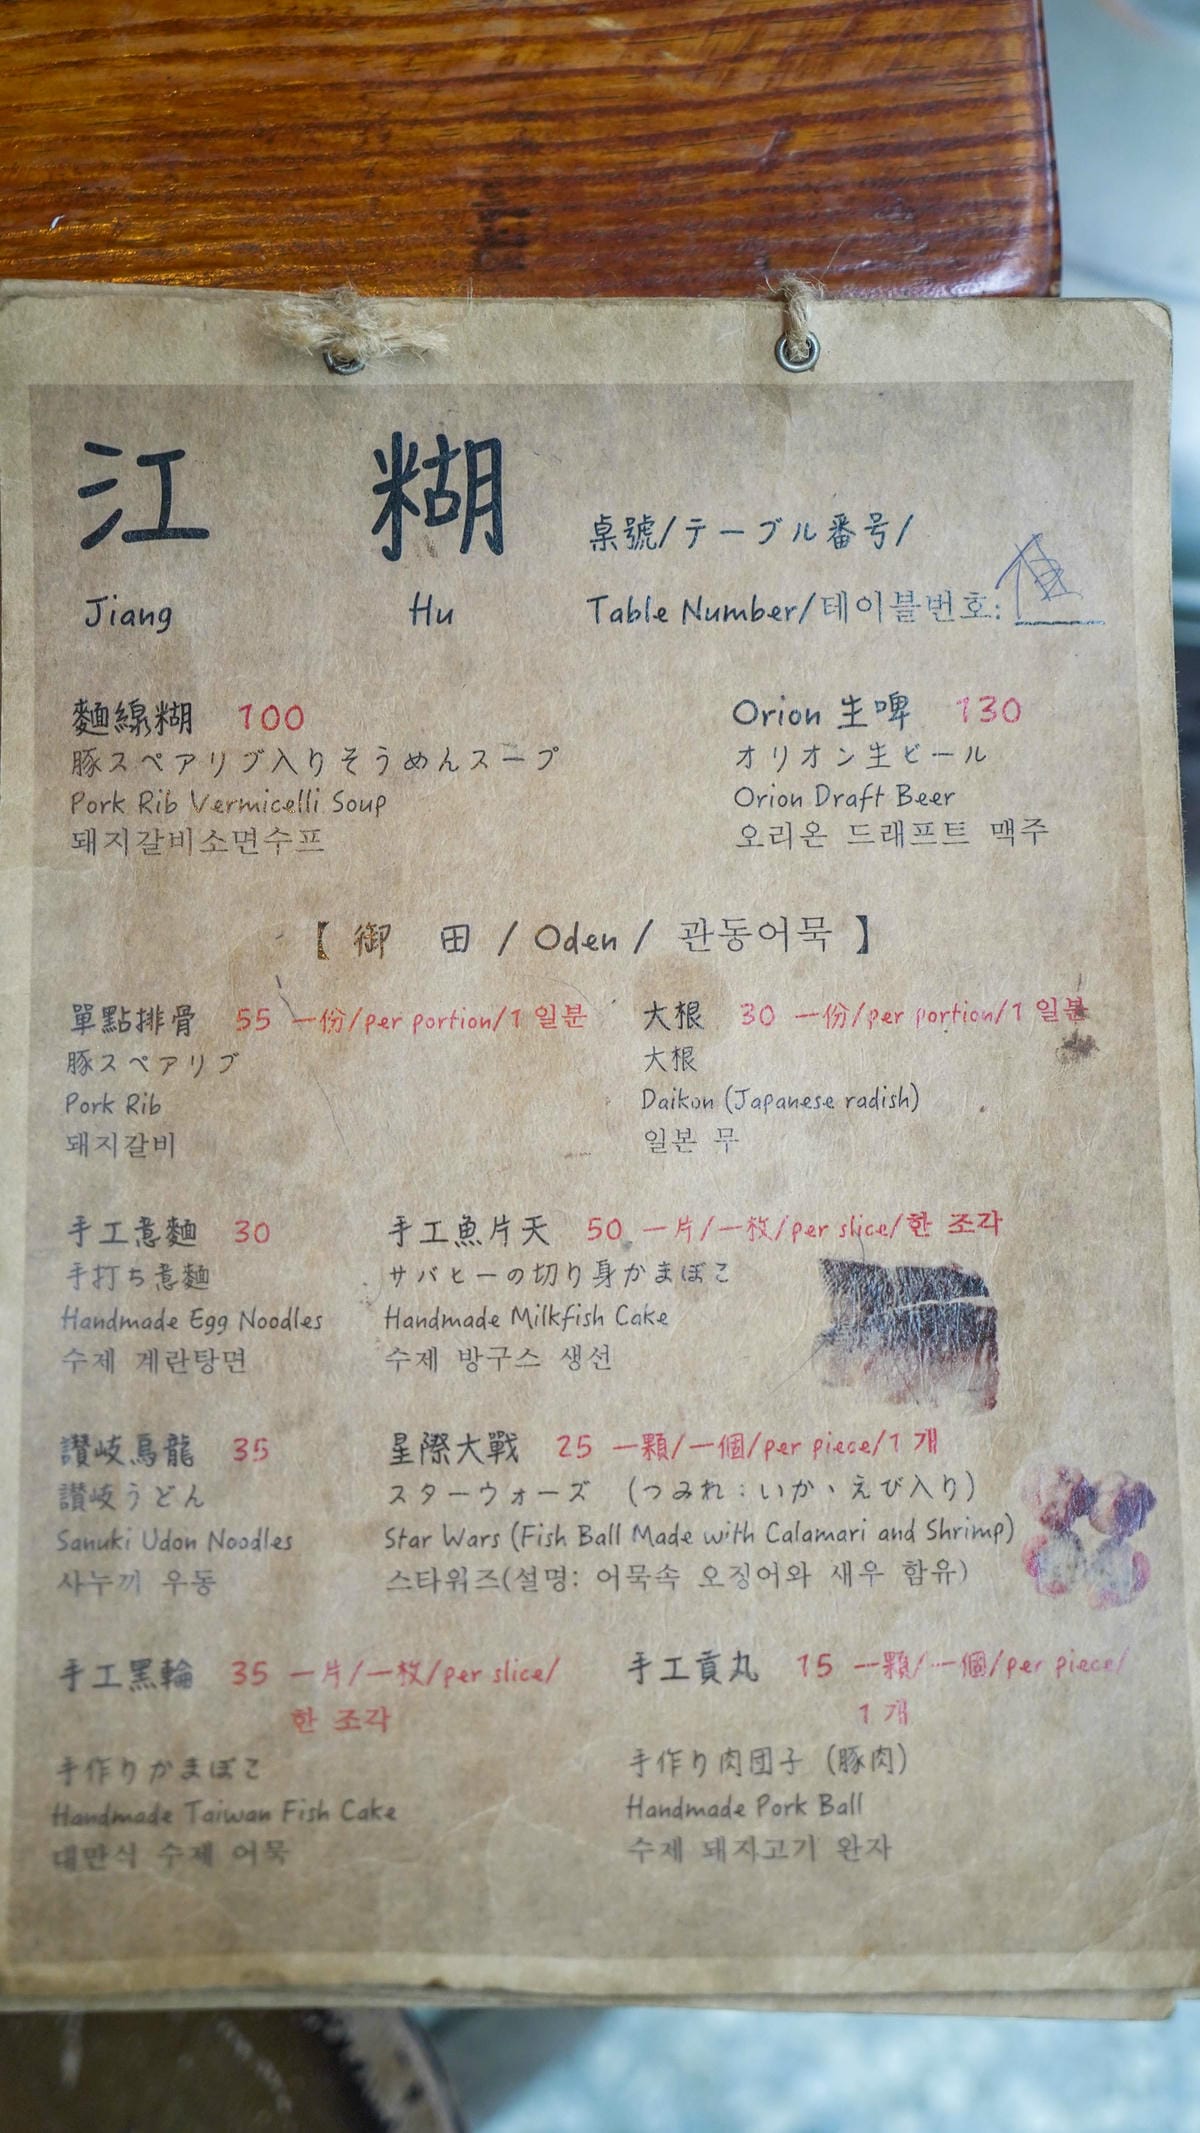 江 糊
Jiang Hu
桌號/テーブル番号/
Table Number/테이블번호:
麵線糊 100
豚スペアリブ入りそうめんスープ
Pork Rib Vermicelli Soup
돼지갈비소면수프
Orion 生啤 130
オリオン生ビール
Orion Draft Beer
오리온 드래프트 맥주
【 御 田 / Oden / 관동어묵 】
單點排骨 55 一份/per portion/1 일분
豚スペアリブ
Pork Rib
돼지갈비
大根 30 一份/per portion/1 일분
大根
Daikon (Japanese radish)
일본 무
手工意麵 30
手打ち意麵
Handmade Egg Noodles
수제 계란탕면
手工魚片天 50 一片/一枚/per slice/한 조각
サバヒーの切り身かまぼこ
Handmade Milkfish Cake
수제 방구스 생선
讚岐烏龍 35
讃岐うどん
Sanuki Udon Noodles
사누끼 우동
星際大戰 25 一顆/一個/per piece/1 개
スターウォーズ (つみれ：いか、えび入り)
Star Wars (Fish Ball Made with Calamari and Shrimp)
스타워즈(설명: 어묵속 오징어와 새우 함유)
手工黑輪 35 一片/一枚/per slice/
한 조각
手作りかまぼこ
Handmade Taiwan Fish Cake
대만식 수제 어묵
手工貢丸 15 一顆/一個/per piece/
1 개
手作り肉団子 (豚肉)
Handmade Pork Ball
수제 돼지고기 완자